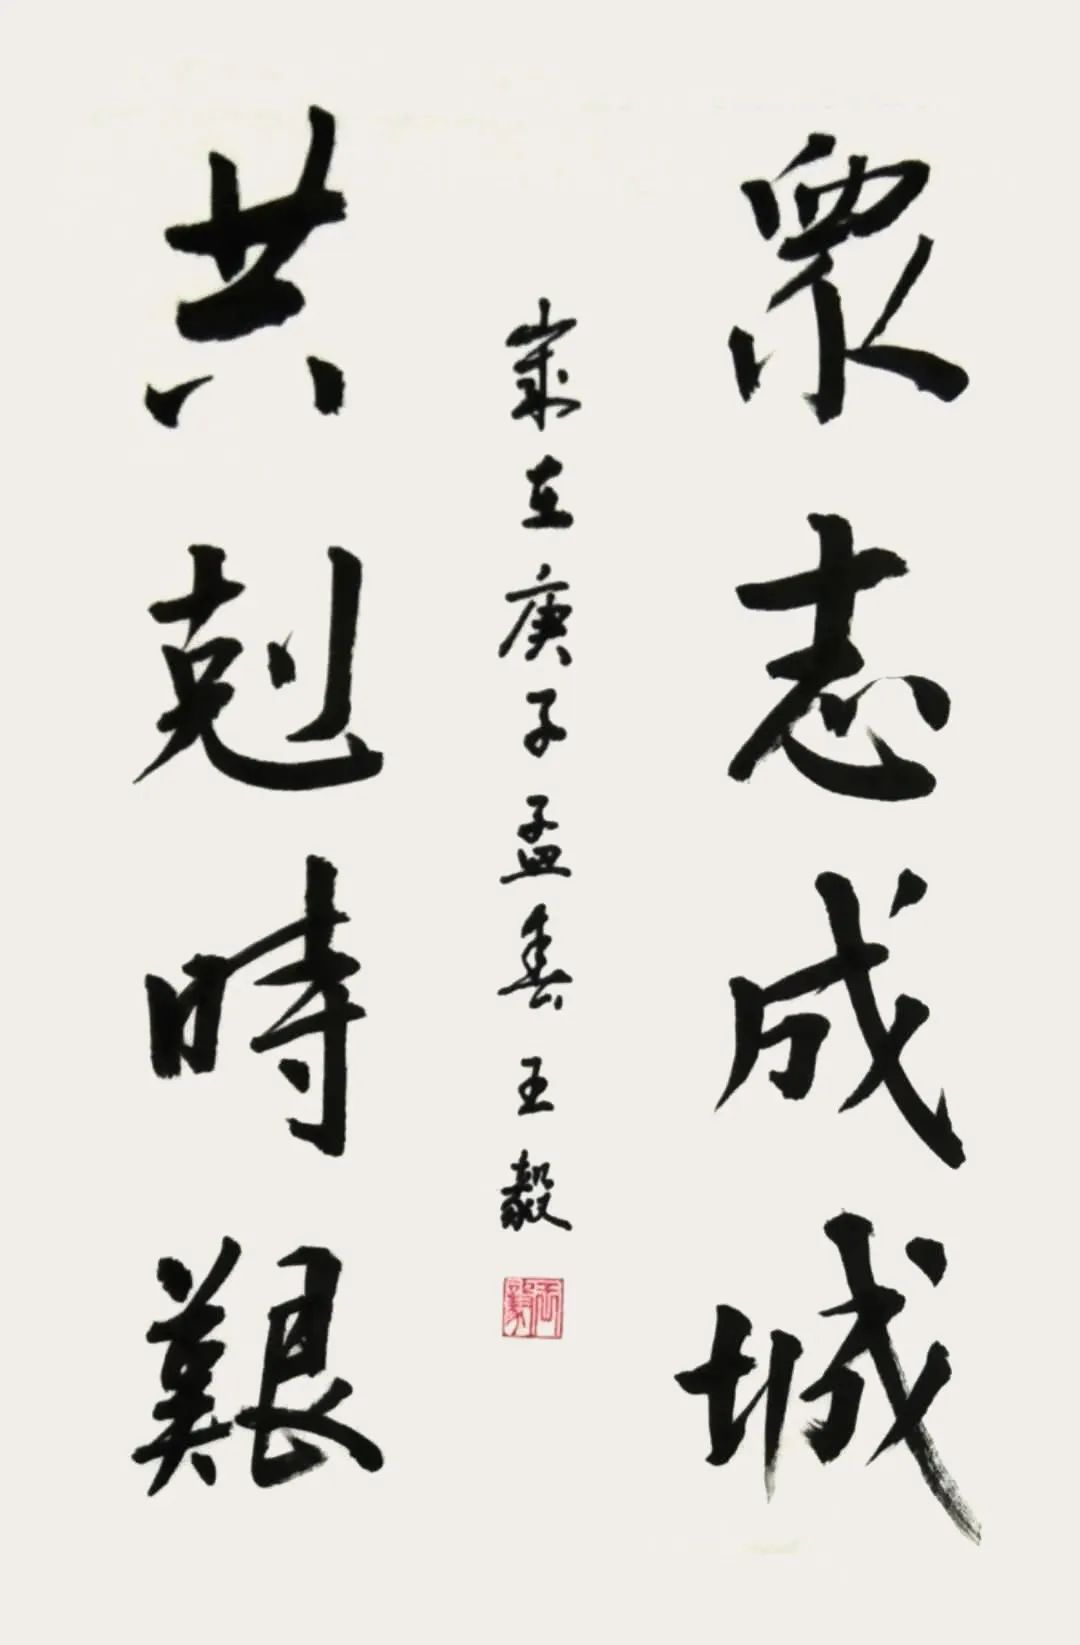 眾志成城
共剋時艱
歲在庚子孟春 王毅
王毅